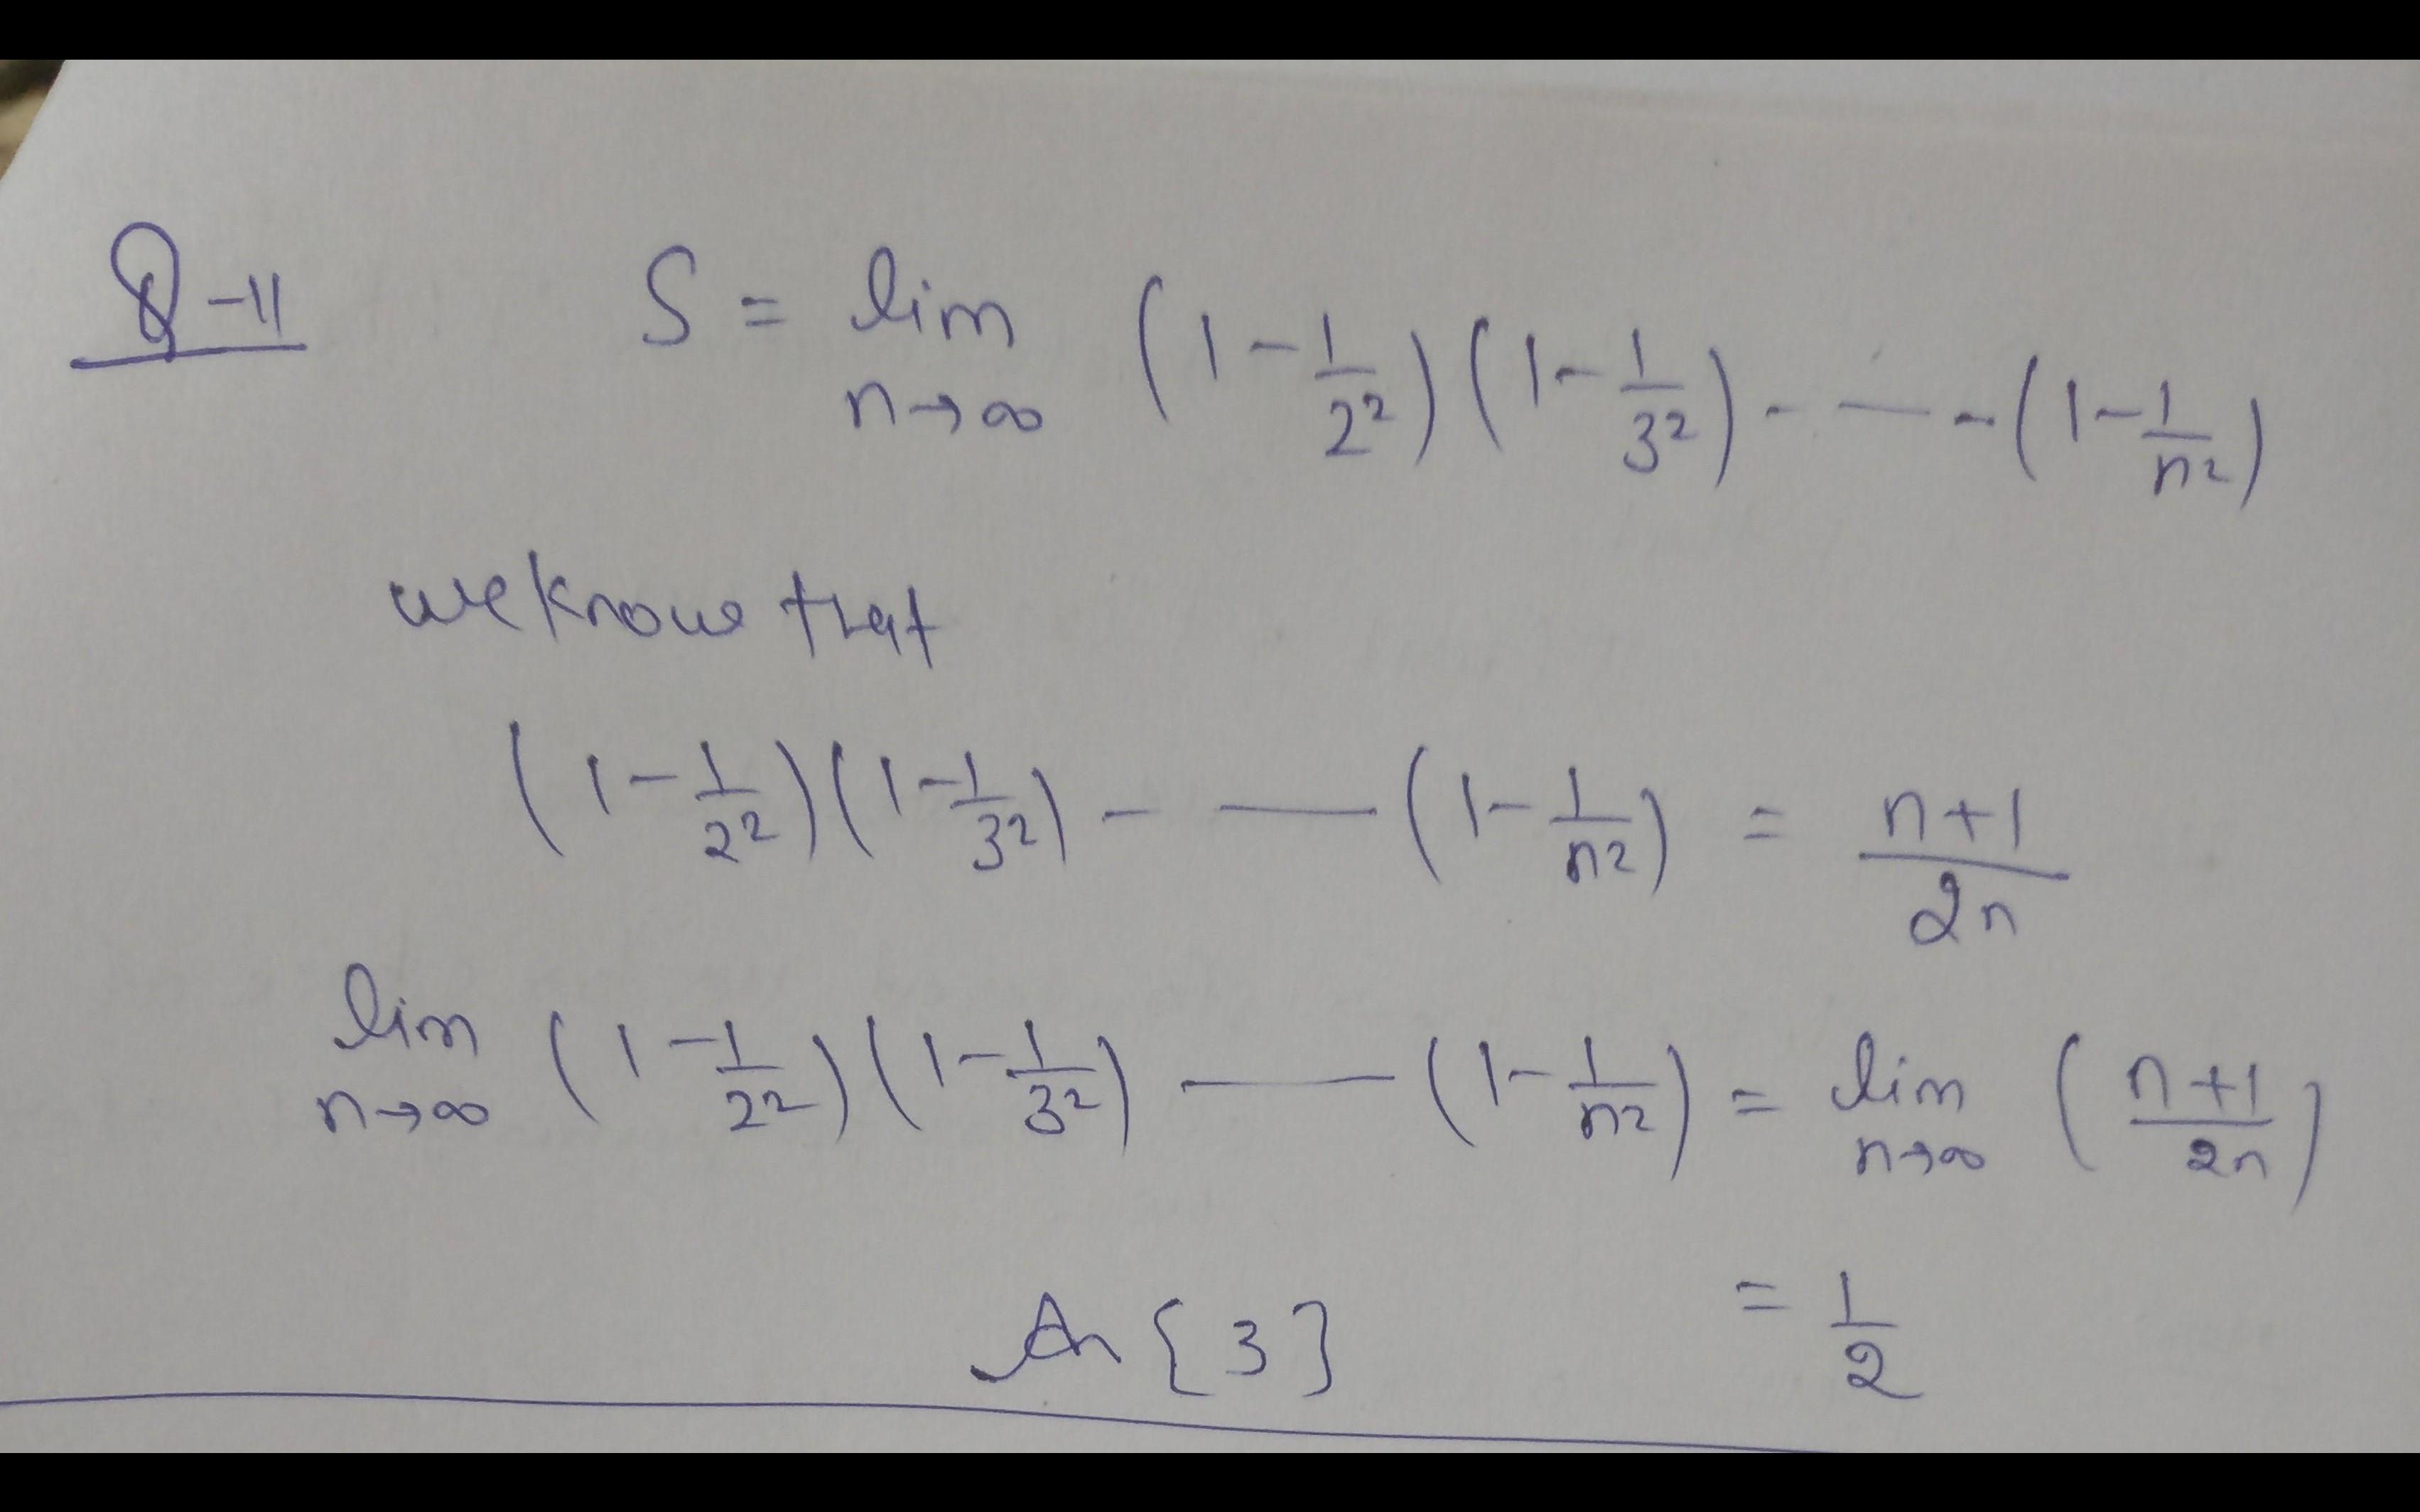 Q-11 S = lim n→∞ (1 - 1/2²)(1 - 1/3²) - — - (1 - 1/n²)
we know that
(1 - 1/2²)(1 - 1/3²) - — (1 - 1/n²) = n+1/2n
lim n→∞ (1 - 1/2²)(1 - 1/3²) — (1 - 1/n²) = lim n→∞ (n+1/2n)
An {3} = 1/2